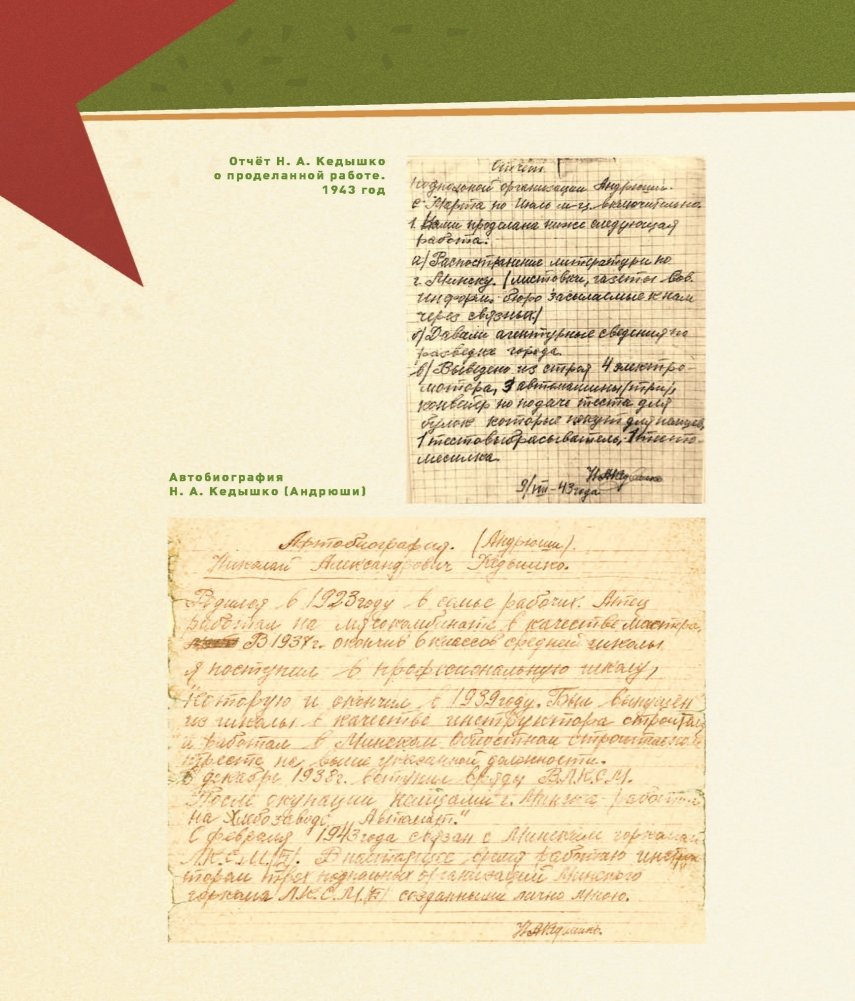 Отчёт Н. А. Кедышко
о проделанной работе.
1943 год
Отчёт
Подпольной организации Андрюши.
с Марта по Июль м-ц. включительно
1. Нами проделана ниже следующая
работа:
а) Распостранение литературы по
г. Минску. (листовки, газеты Сов.
информ. бюро засылаемые к нам
через связных)
б) Давали агентурные сведения по
разведке города.
в) Выведено из строя 4 электро-
мотора, 3 автомашины (три),
конвеер по подаче теста для
булок которые пекут для немцев,
1 тестовыбрасыватель, 1 тесто-
месилка.
Н.А.Кедышко
9/VIII-43 года
Автобиография
Н. А. Кедышко (Андрюши)
Автобиография. (Андрюши).
Николай Александрович Кедышко.
Родился в 1923 году в семье рабочих. Атец
работал на мясокомбинате в качестве мастера.
В 1937 г. окончив 6 классов средней школы
я поступил в профессиональную школу,
которую и окончил в 1939 году. Был выпущен
из школы в качестве инструктора
и работал в Минском Областном
тресте на выше указанной должности.
В декабре 1938 г. вступил в ряды В.Л.К.С.М.
После окупации г. Минска работал
на Хлебозаводе „Автомат."
С февраля 1943 года связан с Минским горкомом
Л.К.С.М.(Б). В настоящее время работаю
трех подпольных организаций Минского
горкома Л.К.С.М.(Б) созданными лично мною.
Н.А.Кедышко.